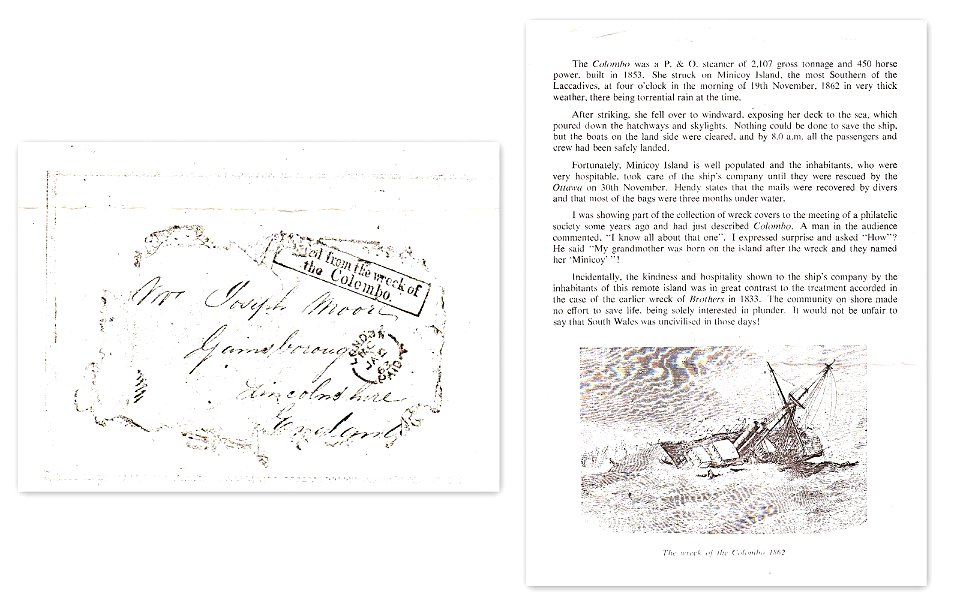 ed from the wreck of
the Colombo.
Mr Joseph Moore
Gainsborough
Lincolnshire
England
LONDON
PAID
The Colombo was a P. & O. steamer of 2,107 gross tonnage and 450 horse
power, built in 1853. She struck on Minicoy Island, the most Southern of the
Laccadives, at four o'clock in the morning of 19th November, 1862 in very thick
weather, there being torrential rain at the time.
After striking, she fell over to windward, exposing her deck to the sea, which
poured down the hatchways and skylights. Nothing could be done to save the ship,
but the boats on the land side were cleared, and by 8.0 a.m. all the passengers and
crew had been safely landed.
Fortunately, Minicoy Island is well populated and the inhabitants, who were
very hospitable, took care of the ship's company until they were rescued by the
Ottawa on 30th November. Hendy states that the mails were recovered by divers
and that most of the bags were three months under water.
I was showing part of the collection of wreck covers to the meeting of a philatelic
society some years ago and had just described Colombo. A man in the audience
commented, "I know all about that one". I expressed surprise and asked "How"?
He said "My grandmother was born on the island after the wreck and they named
her 'Minicoy' "!
Incidentally, the kindness and hospitality shown to the ship's company by the
inhabitants of this remote island was in great contrast to the treatment accorded in
the case of the earlier wreck of Brothers in 1833. The community on shore made
no effort to save life, being solely interested in plunder. It would not be unfair to
say that South Wales was uncivilised in those days!
The wreck of the Colombo 1862